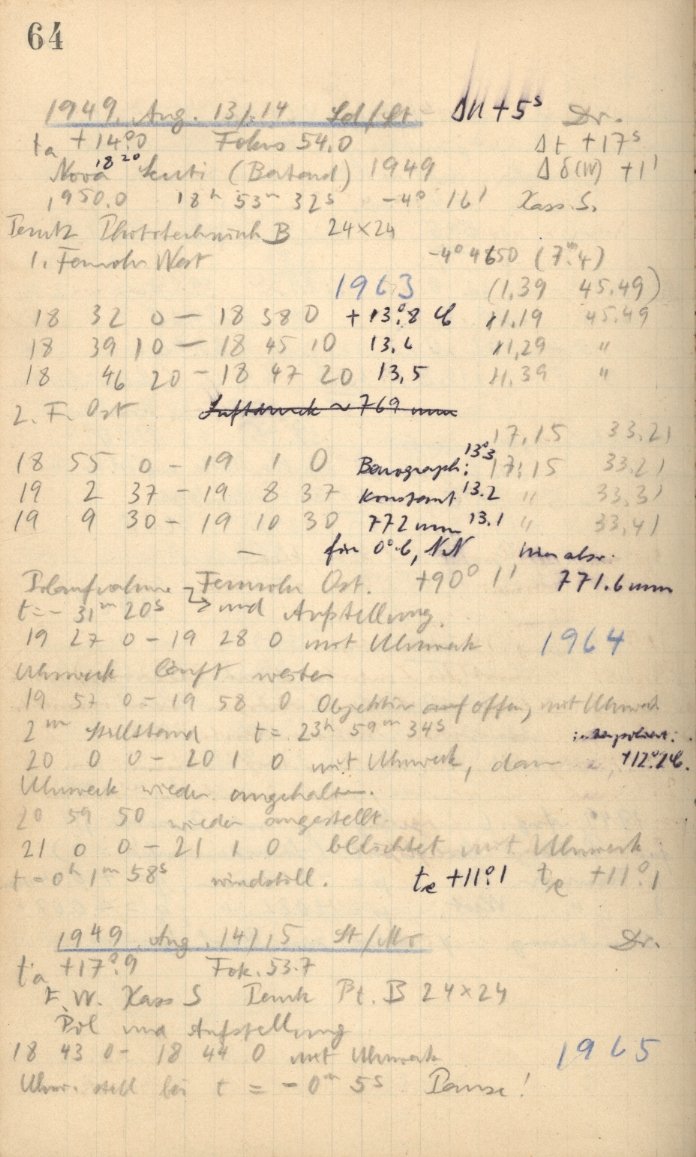 64
1949. Aug. 13/14. Sd/St Δu +5ˢ Dr.
tₐ +14°.0 Fokus 54.0 Δt +17ˢ
18 20
Nova Scuti (Bertaud) 1949 Δδ(W) +1'
1950.0 18ʰ 53ᵐ 32ˢ -4° 16' Kass. S.
Perutz Phototechnisch B 24×24
1. Fernrohr West -4° 4650 (7ᵐ.4)
1963 (1.39 45.49)
18 32 0 – 18 38 0 +13°.8 C 11.19 45.49
18 39 10 – 18 45 10 13.6 11.29 "
18 46 20 – 18 47 20 13,5 11.39 "
2. F. Ost Luftdruck ~ 769 mm
17.15 33.21
18 55 0 – 19 1 0 Barograph: 13°.3 17.15 33.21
19 2 37 – 19 8 37 konstant 13.2 " 33.31
19 9 30 – 19 10 30 772 mm 13.1 " 33.41
– für 0°C, NN
771.6 mm
Polaufnahme Fernrohr Ost. +90° 1'
t = – 31ᵐ 20ˢ und Aufstellung.
19 27 0 – 19 28 0 mit Uhrwerk 1964
Uhrwerk läuft weiter
19 57 0 – 19 58 0 Objektiv auf offen, mit Uhrwerk
2ᵐ Stillstand t = 23ʰ 59ᵐ 34ˢ interpoliert:
20 0 0 – 20 1 0 mit Uhrwerk, dann +12°.2 C.
Uhrwerk wieder angehalten.
20 59 50 wieder angestellt
21 0 0 – 21 1 0 belichtet mit Uhrwerk
t = 0ʰ 1ᵐ 58ˢ windstill. tₑ +11°.1 tₑ +11°.1
1949 Aug. 14/15 St/Mo Dr.
tₐ +17°.9 Fok. 53.7
F. W. Kass S Perutz Pt. B 24×24
Pol und Aufstellung
18 43 0 – 18 44 0 mit Uhrwerk 1965
Uhrw. still bei t = – 0ᵐ 5ˢ Pause!